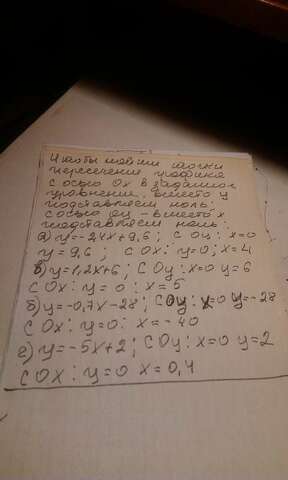 Чтобы найти точки
пересечения графика
с осью Ox в заданное
уравнение вместо y
подставляем ноль;
с осью Oy - вместо x
подставляем ноль:
а) y=-2,4x+9,6; С Oy: x=0
y=9,6; С Ox: y=0; x=4
в) y=1,2x+6; С Oy: x=0 y=6
С Ox: y=0: x=5
б) y=-0,7x-28; С Oy: x=0 y=-28
С Ox: y=0: x=-40
г) y=-5x+2; С Oy: x=0 y=2
С Ox: y=0 x=0,4